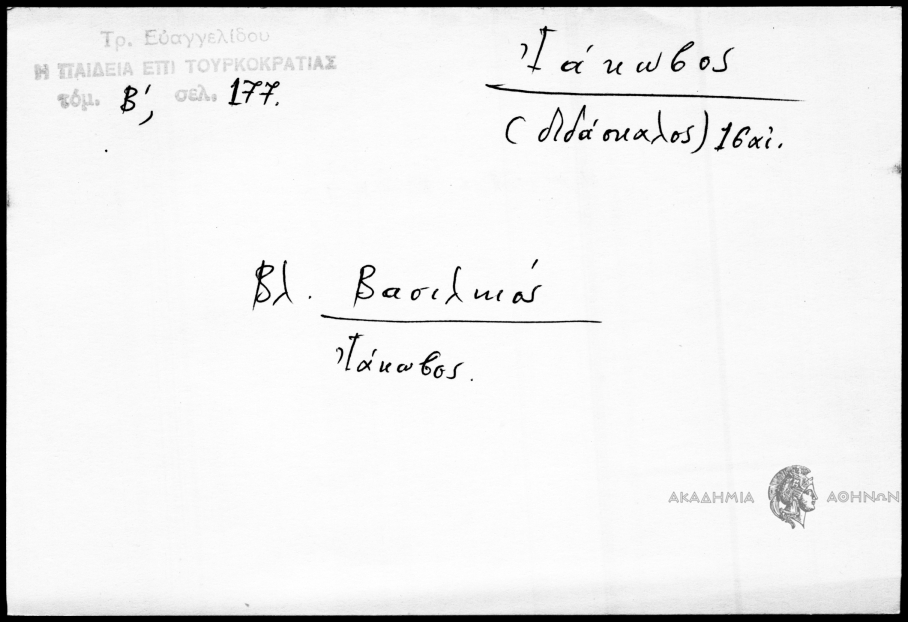 Τρ. Εὐαγγελίδου
Η ΠΑΙΔΕΙΑ ΕΠΙ ΤΟΥΡΚΟΚΡΑΤΙΑΣ
τόμ. Β', σελ. 177.
Ἰάκωβος
(διδάσκαλος) 16 αἰ.
Βλ. Βασιλικός
Ἰάκωβος.
ΑΚΑΔΗΜΙΑ ΑΘΗΝΩΝ